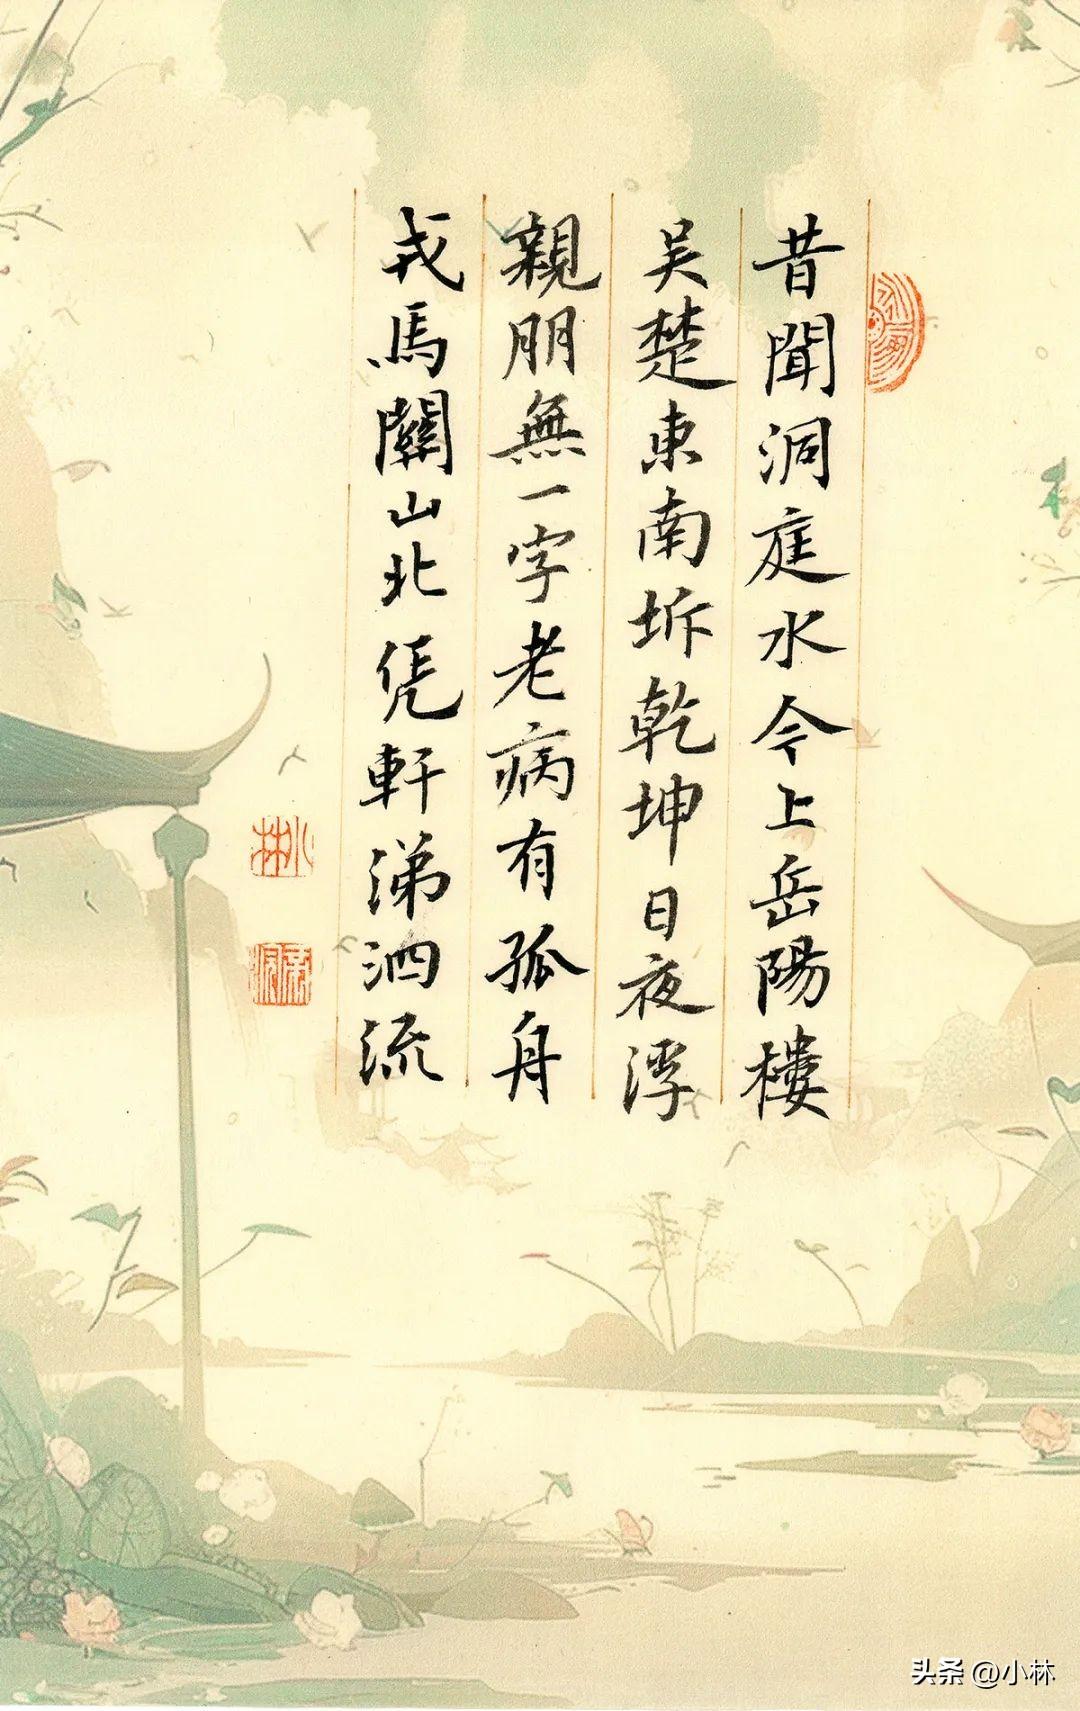 昔聞洞庭水今上岳陽樓
吴楚東南坼乾坤日夜浮
親朋無一字老病有孤舟
戎馬關山北凭軒涕泗流
小林
头条 @小林